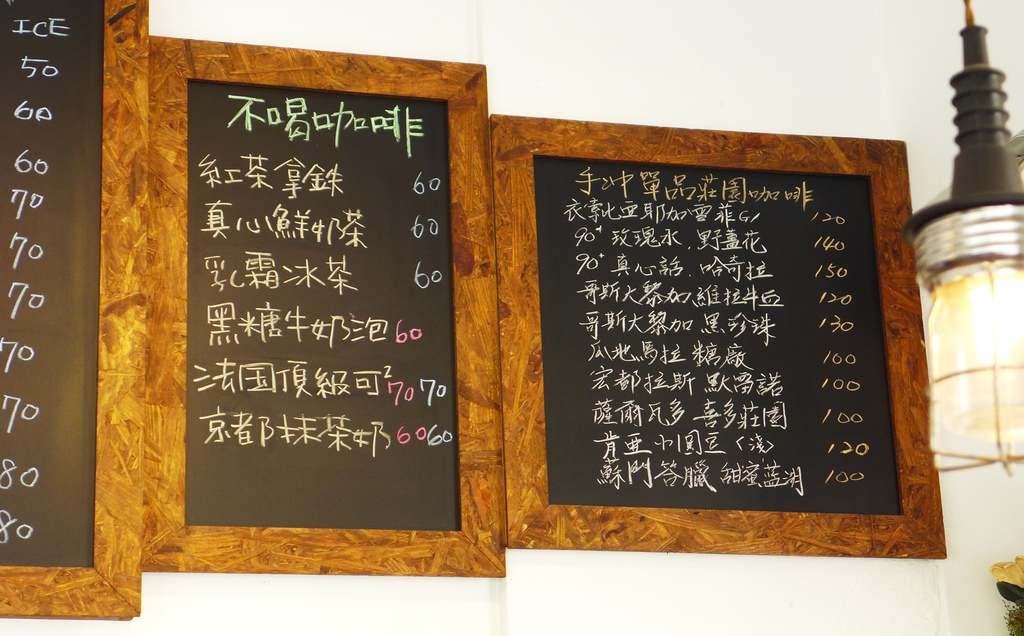 ICE
50
60
60
70
70
70
70
70
80
80
不喝咖啡
紅茶拿銖 60
真心鮮奶茶 60
乳霜冰茶 60
黑糖牛奶泡 60
法国頂級可² 70 70
京都抹茶奶 60 60
手冲單品莊園咖啡
衣索比亞耶加雪菲G1 120
90⁺ 玫瑰水.野薑花 140
90⁺ 真心話.哈奇拉 150
哥斯大黎加 維拉 120
哥斯大黎加.黑珍珠 130
瓜地馬拉 糖廠 100
宏都拉斯 默雷諾 100
薩爾瓦多 喜多莊園 100
肯亞小圓豆〈淺〉 120
蘇門答臘 甜蜜蓝湖 100